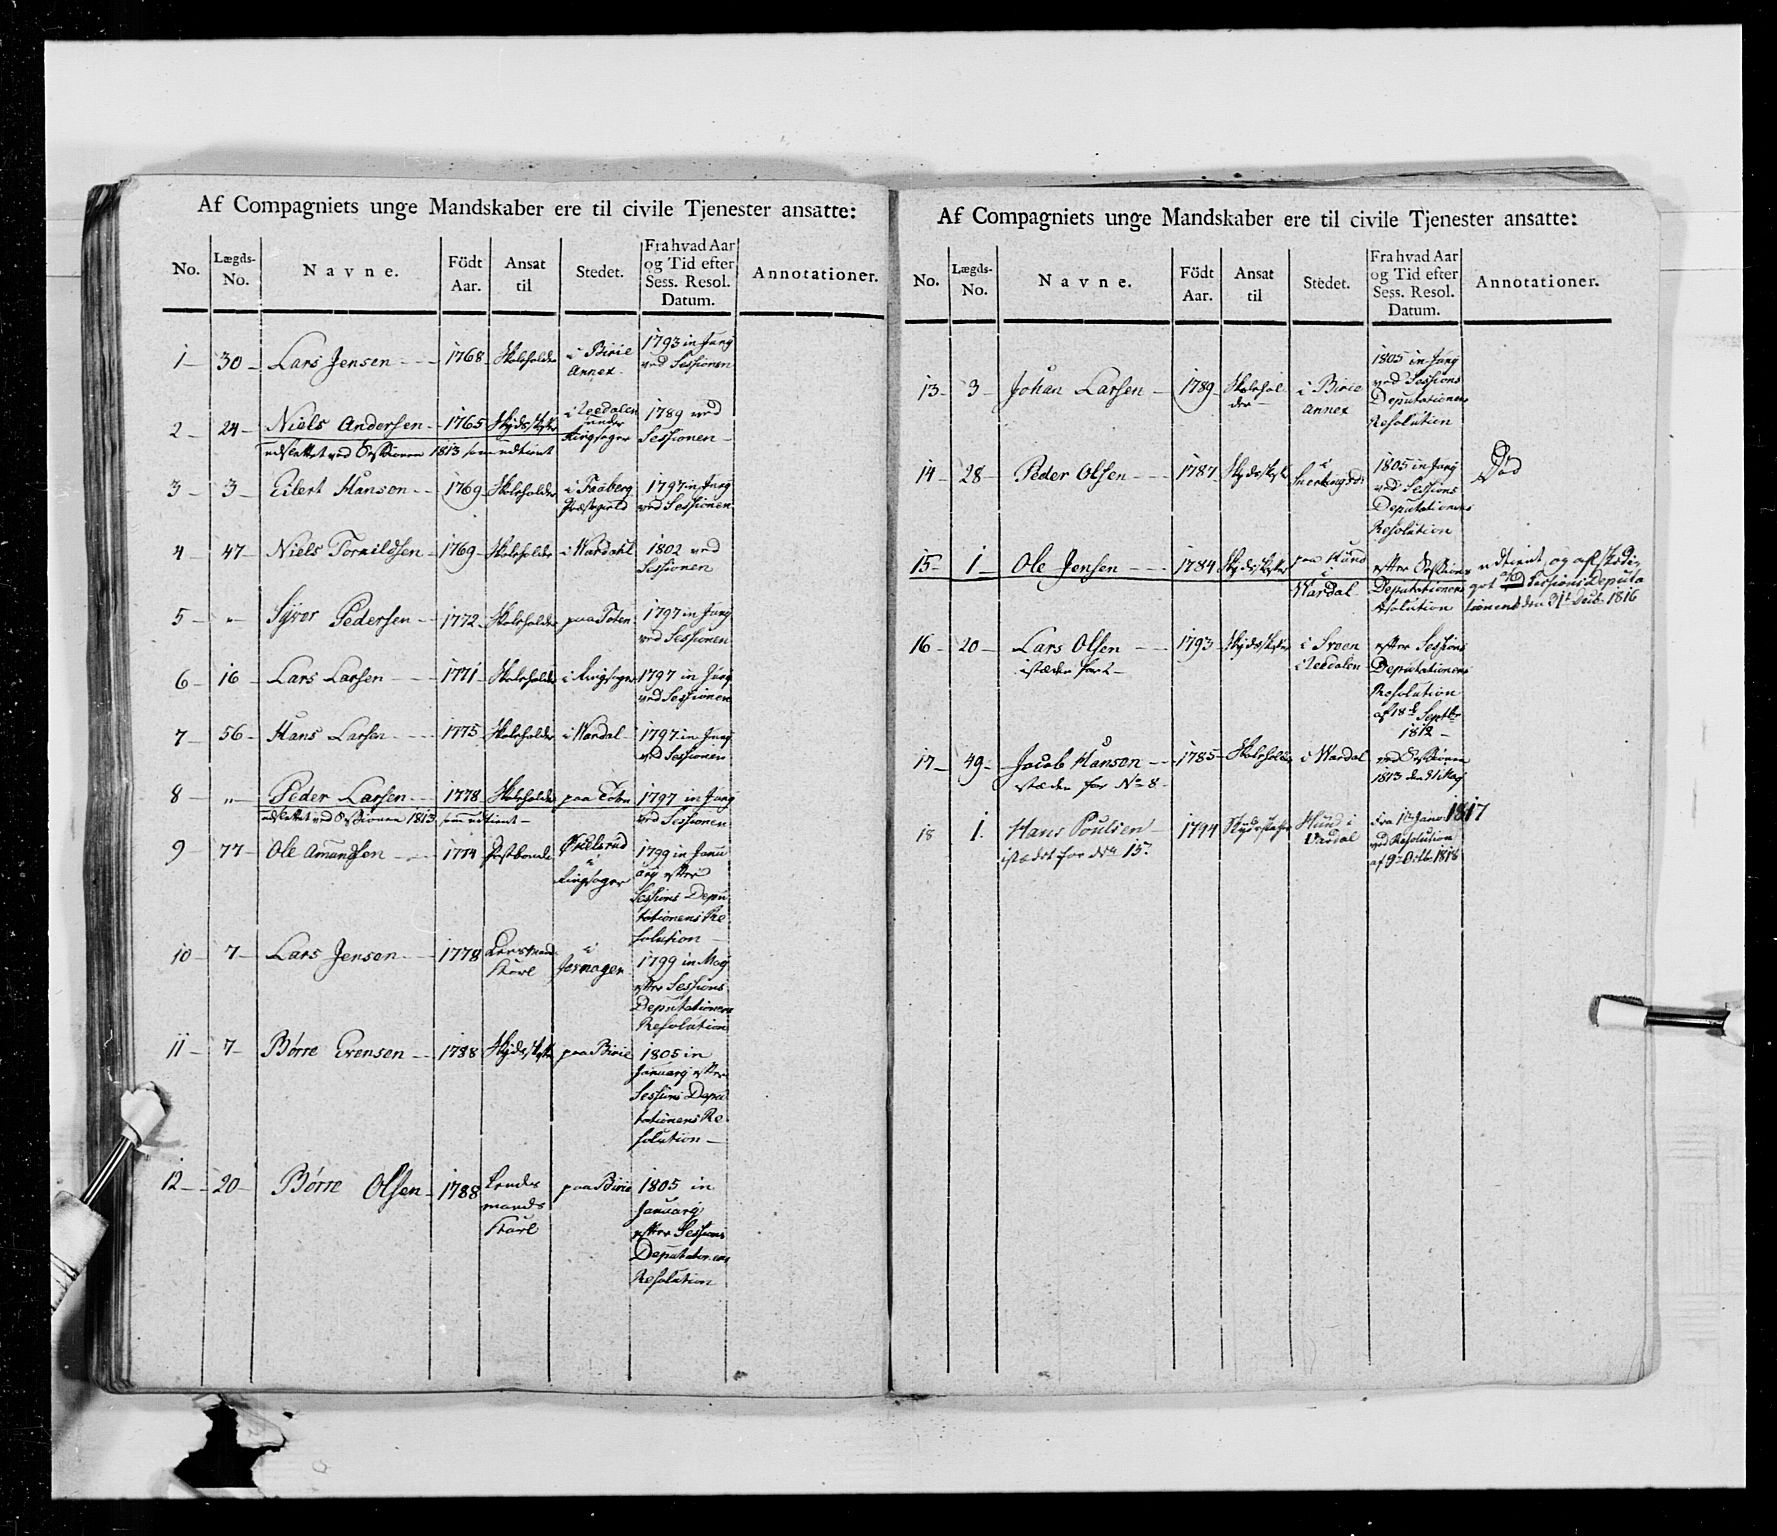 Af Compagniets unge Mandskaber ere til civile Tjenester ansatte:
No. Lægds-No. Navne. Födt Aar. Ansat til Stedet. Fra hvad Aar og Tid efter Sess. Resol. Datum. Annotationer.
1 – 30 – Lars Jensen – 1768 – Skoleholder i Birie Annex – 1793 in Juny ved Sessionen
2 – 24 – Niels Andersen – 1765 Skydsskaffer under Ringsager 1789 ved Sessionen –
udslettet ved Sessionen 1813 som udtient
3 – 3 – Eilert Hanson – 1769 – Skoleholder i Faaberg Præstegield 1797 in Juny ved Sessionen
4 – 47 – Niels – 1769 – Skoleholder i Wardahl 1802 ved Sessionen
5 – „ – Syver Pedersen – 1772 – Skoleholder paa Toten 1797 in Juny ved Sessionen
6 – 16 – Lars Larsen – 1771 – Skoleholder i Ringsager 1797 in Juny ved Sessionen
7 – 56 – Hans Larsen – 1775 Skoleholder i Wardal – 1797 in Juny ved Sessionen
8 – „ – Peder Larsen – 1778 Skoleholder paa Toten 1797 in Juny ved Sessionen
udslettet ved Sessionen 1813 som udtient –
9 – 77 – Ole Amundsen – 1774 Postbonde i Ringsager 1799 in Januarij efter Sessions Deputationens Resolution –
10 – 7 – Lars Jenson – 1778 Karl i 1799 in May efter Sessions Deputationens Resolution
11 – 7 – Børre Evensen – 1788 Skydsskaffer paa Birie 1805 in January efter Sessions Deputationens Resolution –
12 – 20 – Børre Olsen – 1788 Lendsmands Karl paa Birie 1805 in January efter Sessions Deputationens Resolution
Af Compagniets unge Mandskaber ere til civile Tjenester ansatte:
No. Lægds-No. Navne. Födt Aar. Ansat til Stedet. Fra hvad Aar og Tid efter Sess. Resol. Datum. Annotationer.
13 – 3 – Johan Larsen – 1789 – Skoleholder – i Birie Annex 1805 in Juny ved Sessions Deputationens Resolution
14 – 28 – Peder Olsen – 1787 Skydsskaffer i 1805 in Juny ved Sessions Deputationens Resolution Død
15 – 1 – Ole Jensen – 1784 Skydsskaffer paa Hund i Wardal efter Sessions Deputationens Resolution udtient og afskediget Sessions Deputationens den 31t Decbr. 1816
16 – 20 – Lars Olsen – 1793 Skydsskaffer i 1812 – efter Sessions Deputationens Resolution af 18de Septbr
istæden for 2 –
17 – 49 – Jacob Hanson – 1785 – Skoleholder i Wardal ved Sessionen 1813
istæden for No 8 –
18 1. Hans Poulsen – 1794 Skydsskaffer Hund i Vardal Fra 1te Janv. 1817 ved Resolution af 9de Octbr. 1818
istædet for No 15.